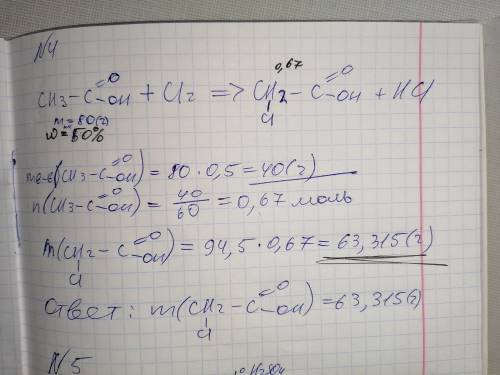 N4
0,67
CH3-C=O-OH + Cl2 => CH2-C=O-OH + HCl
Cl
m=80(г)
ω=50%
m в-в(CH3-C=O-OH) = 80·0,5=40(г)
n(CH3-C=O-OH) = 40/60 = 0,67 моль
m(CH2-C=O-OH) = 94,5·0,67=63,315(г)
Cl
Ответ: m(CH2-C=O-OH)=63,315(г)
Cl
N5
H2SO4